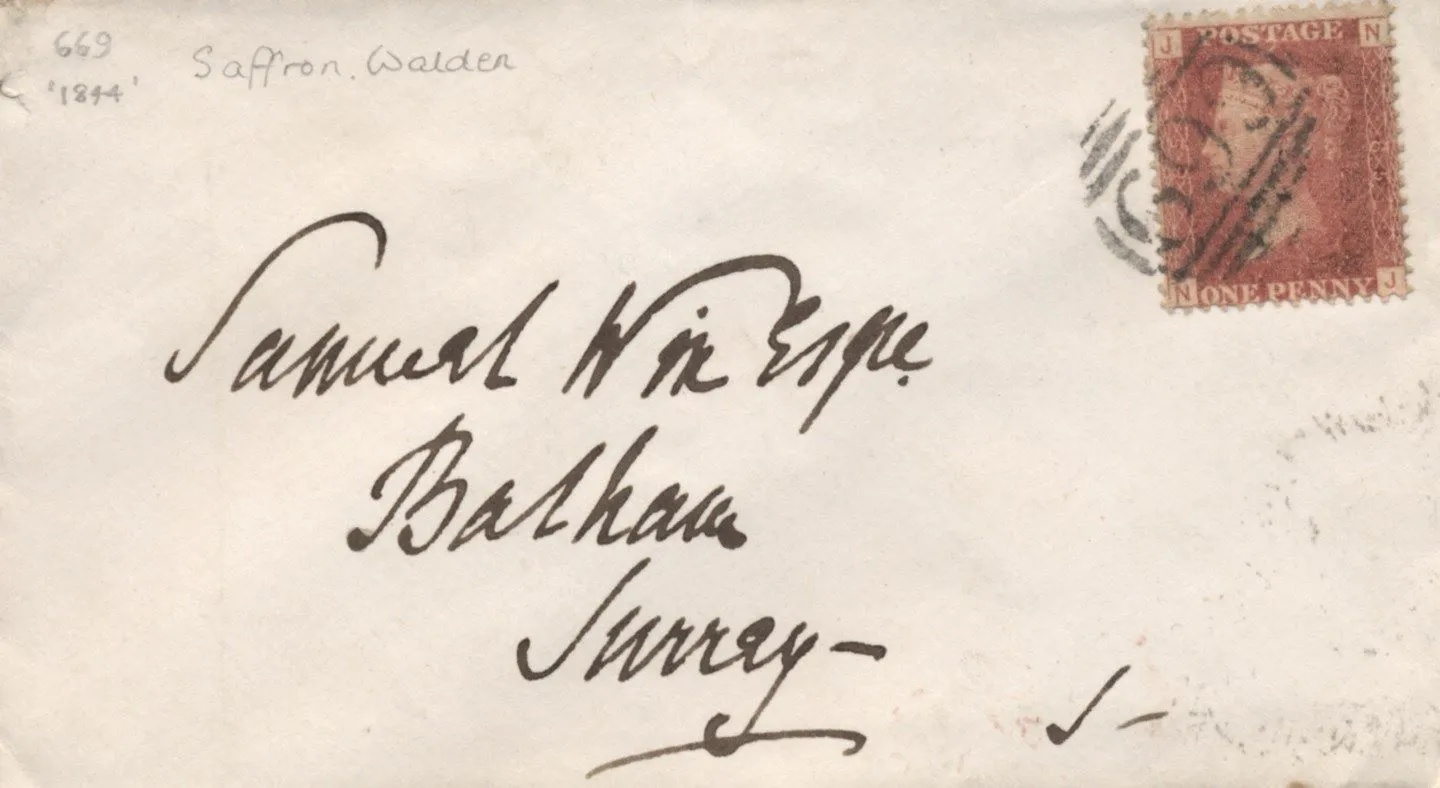 669
'1844'
Saffron. Walden
J POSTAGE N
669
N ONE PENNY J
Samuel Win Esqre.
Balham
Surrey —
S —